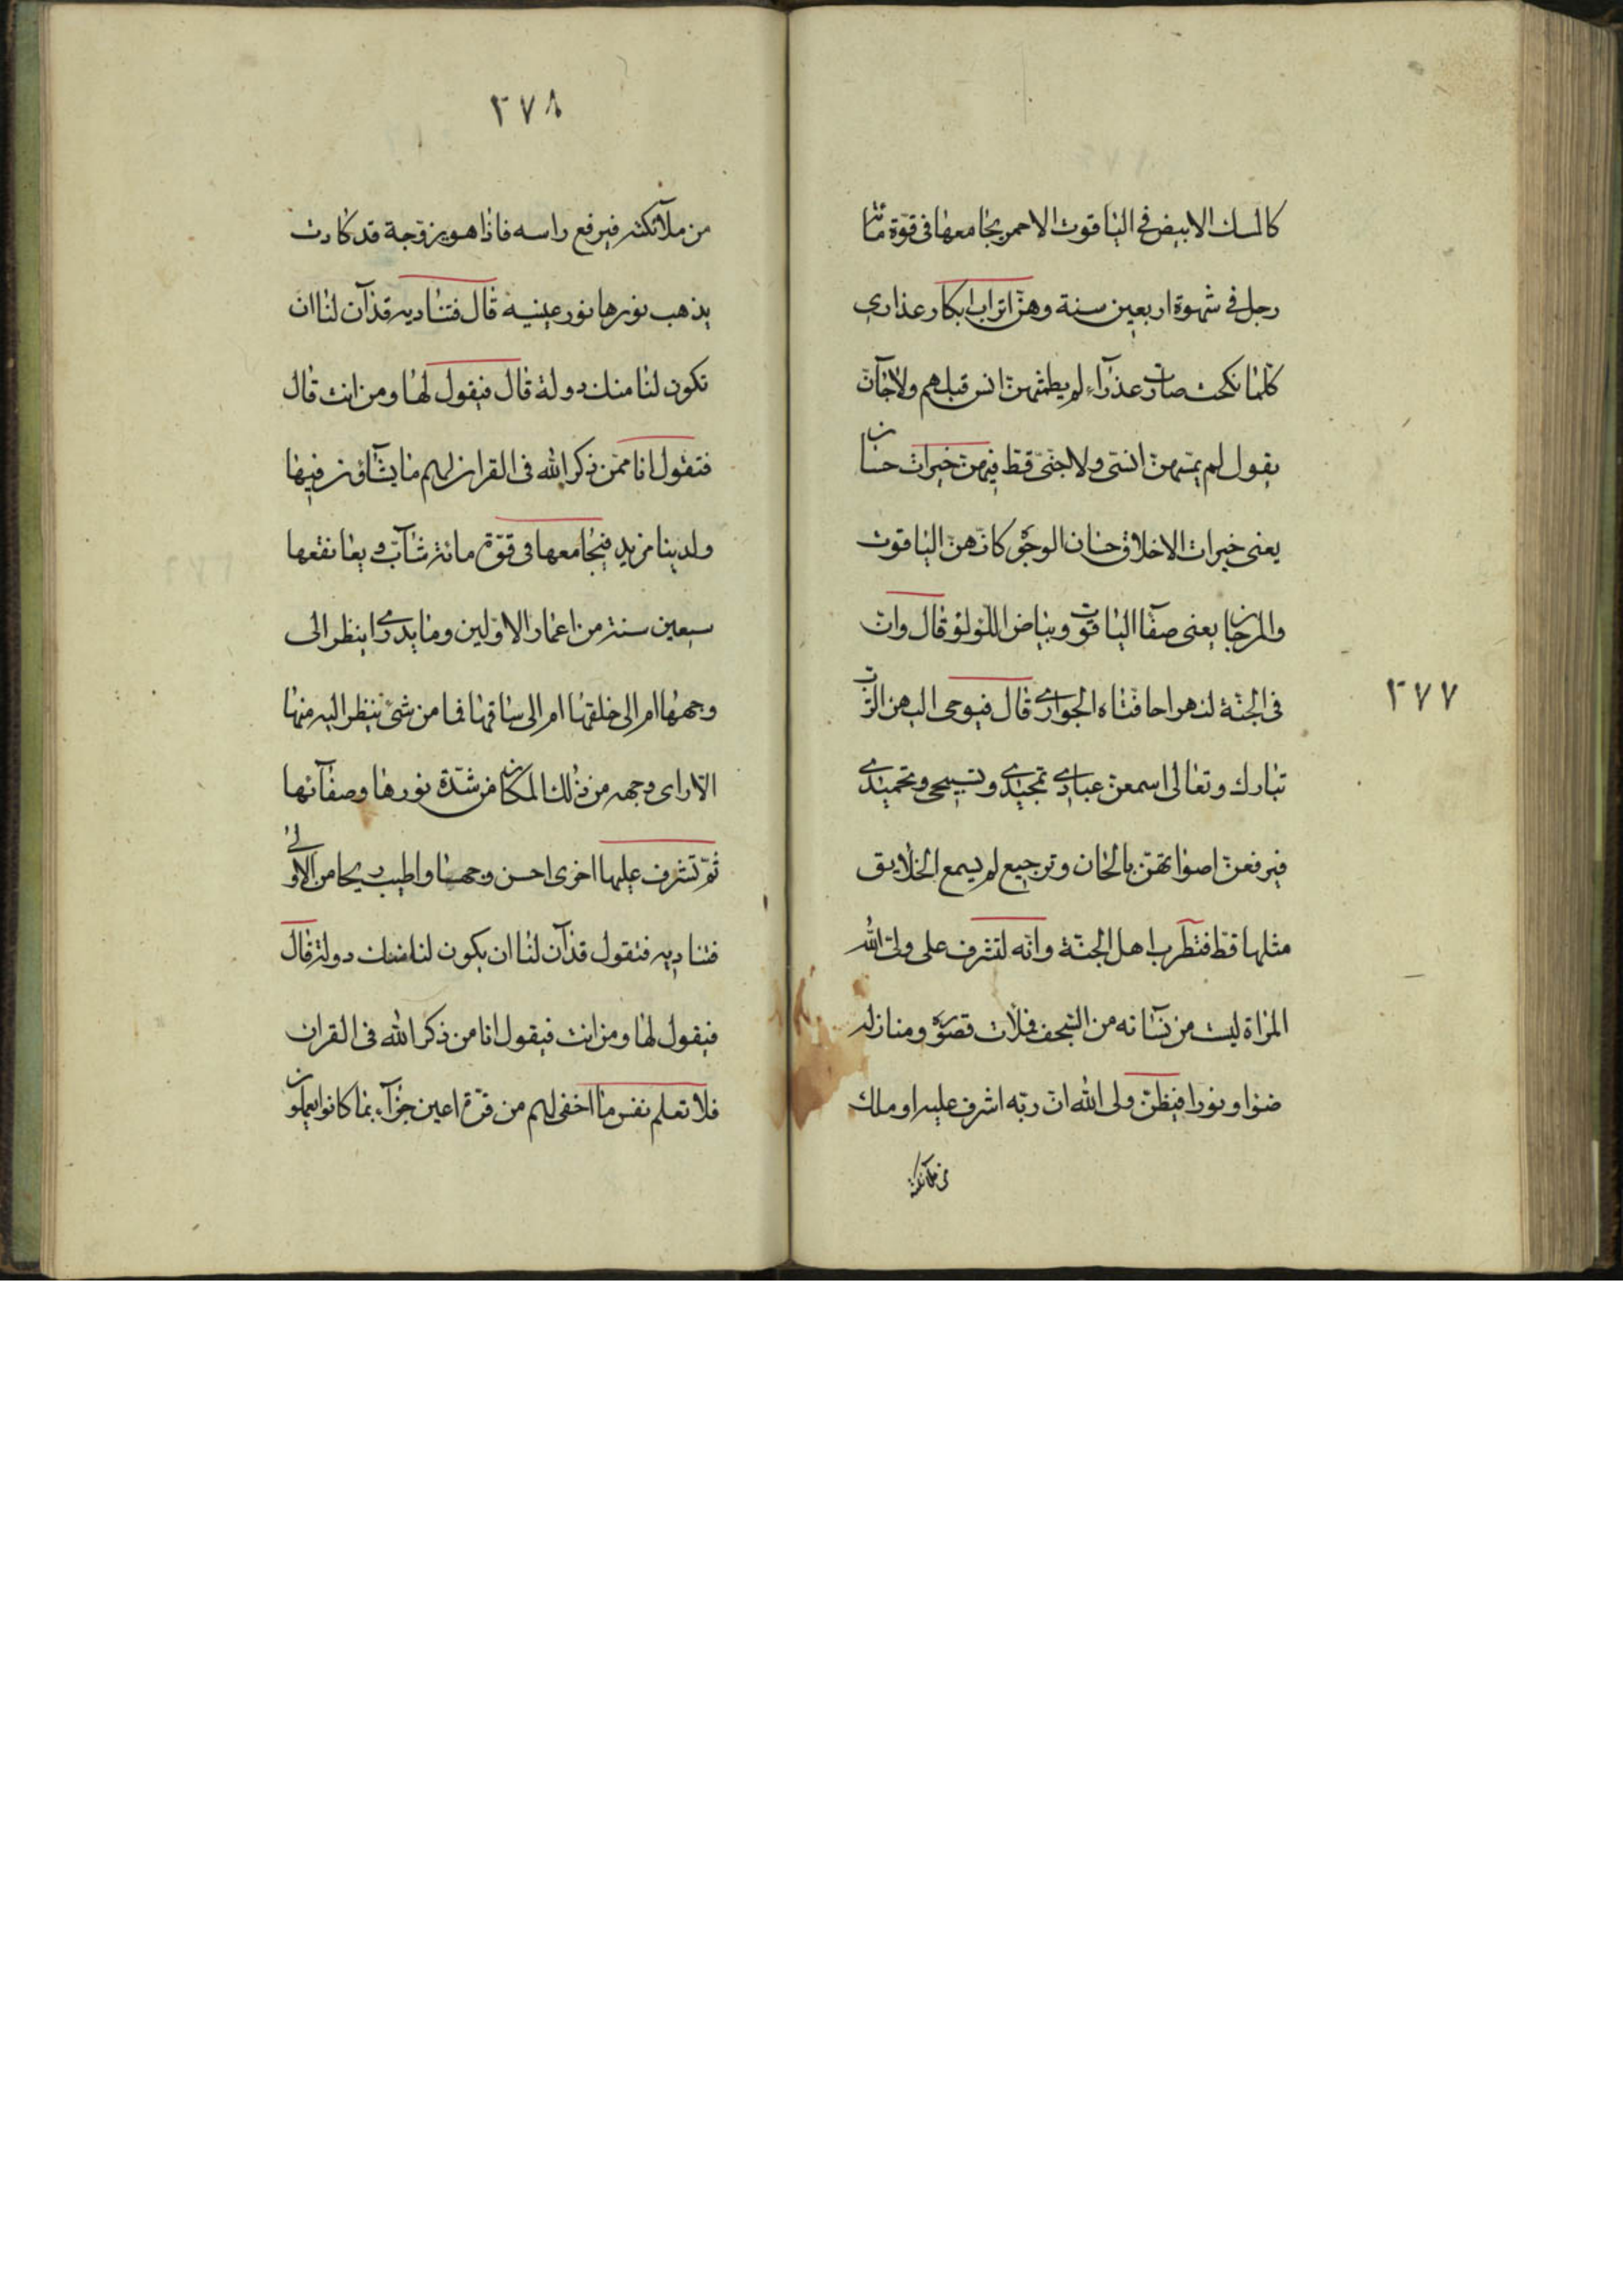 كالسلك الابيض في الياقوت الاحمر يجامعها في قوة مائة
رجل في شهوة اربعين سنة وهن اتراب ابكار عذارى
كلما نكحت صارت عذرآء لم يطمثهن انس قبلهم ولا جآن
يقول لم يمسهن انسى ولا جنى قط فيهن خيرات حسان
يعنى خيرات الاخلاق حسان الوجوه كانهن الياقوت
والمرجان يعنى صفا الياقوت وبياض اللؤلؤ قال وان
في الجنة لنهرا حافتاه الجوارى قال فيوحى اليهن الرب
تبارك وتعالى اسمعن عبادى تمجيدى وتسبيحى وتحميدى
فيرفعن اصواتهن بالحان وترجيع لم يسمع الخلايق
مثلها قط فتطرب اهل الجنة وانه لتشرف على ولى الله
المراة ليست من نسآئه من السجف فملات قصوره ومنازله
ضوا ونورا فيظن ولى الله ان ربه اشرف عليه او ملك
من ملآئكته
٢٧٧
٢٧٨
من ملآئكته فيرفع راسه فاذا هو بزوجة قد كادت
يذهب نورها نور عينيه قال فتناديه قد آن لنا ان
تكون لنا منك دولة قال فيقول لها ومن انت قال
فتقول انا ممن ذكر الله في القران لهم ما يشآؤن فيها
ولدينا مزيد فيجامعها في قوة مائة شآب ويعانقها
سبعين سنة من اعمار الاولين وما يدرى اينظر الى
وجهها ام الى خلقها ام الى ساقها فما من شئ ينظر اليه منها
الا راى وجهه من ذلك المكان من شدة نورها وصفآئها
ثم تشرف عليها اخرى احسن وجها واطيب ريحا من الاولى
فتناديه فتقول قد آن لنا ان يكون لنا منك دولة قال
فيقول لها ومن انت فيقول انا من ذكر الله في القران
فلا تعلم نفس ما اخفى لهم من قرة اعين جزآء بما كانوا يعملون